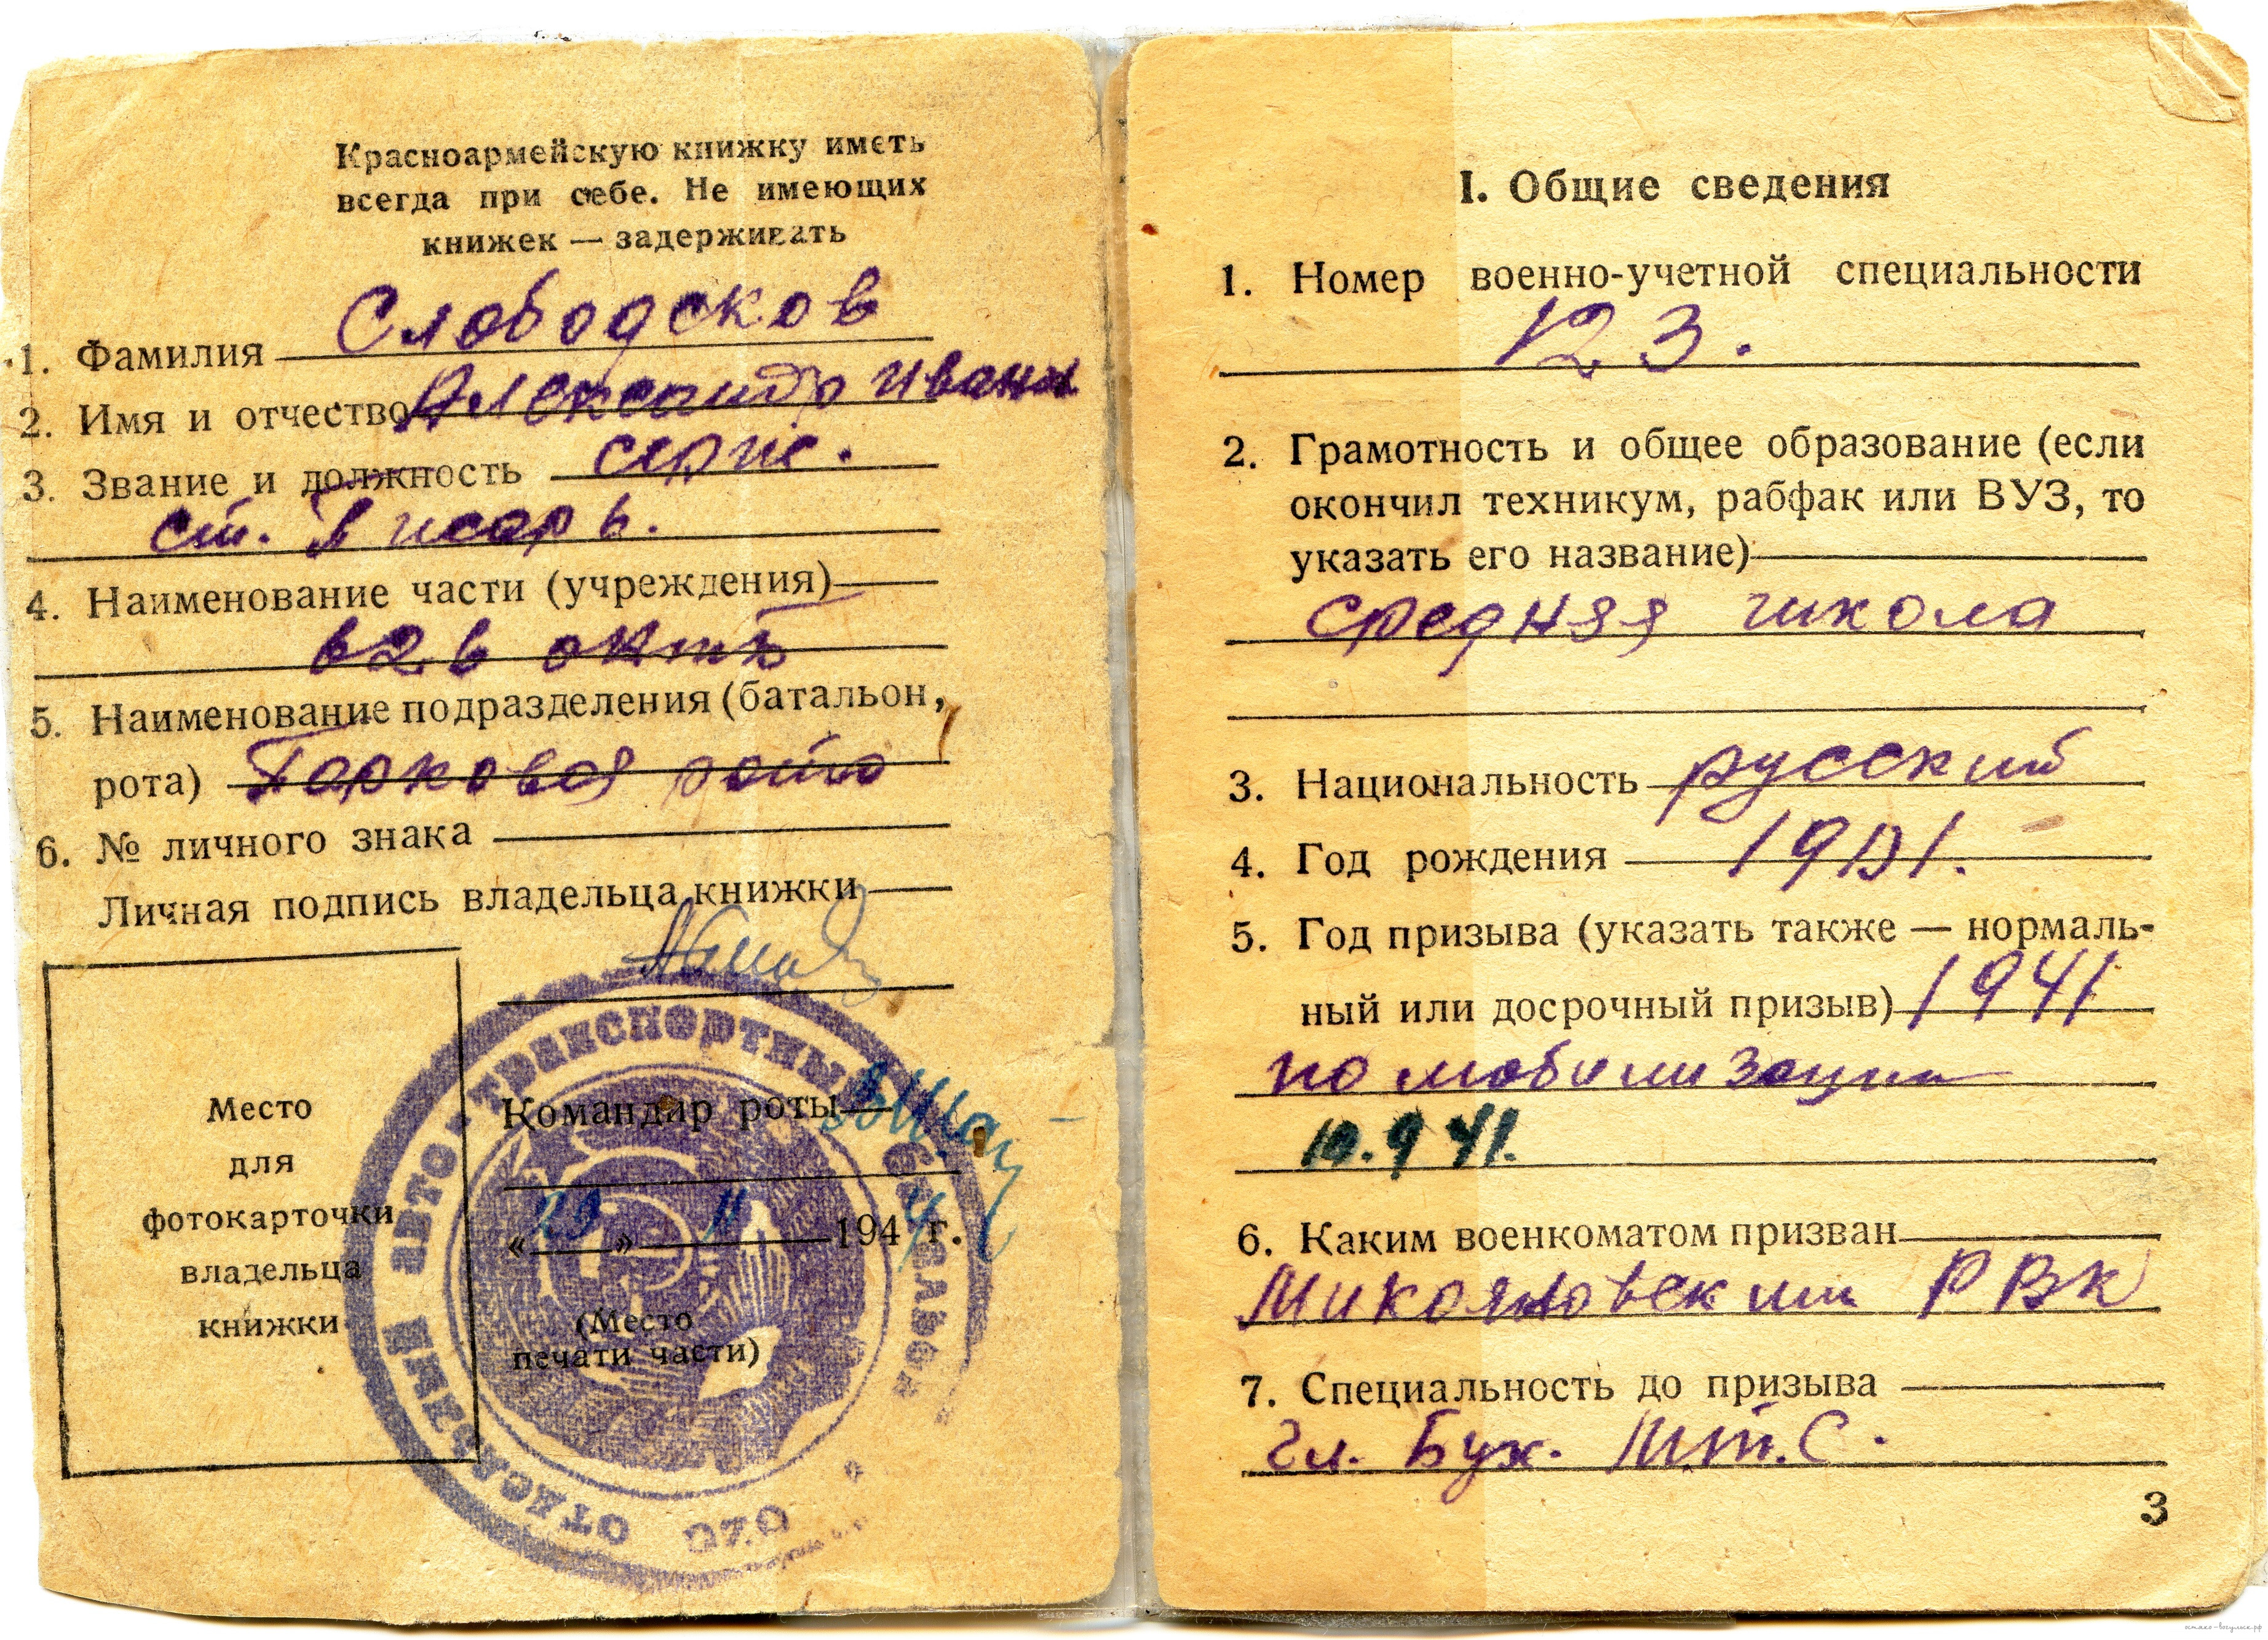 Красноармейскую книжку иметь
всегда при себе. Не имеющих
книжек — задерживать
1. Фамилия Слободсков
2. Имя и отчество Александр Иван
3. Звание и должность серж.
ст. писарь.
4. Наименование части (учреждения)
5. Наименование подразделения (батальон,
рота) Парковая рота
6. № личного знака
Личная подпись владельца книжки
Место
для
фотокарточки
владельца
книжки
Командир роты
«29» 11 1944 г.
(Место
печати части)
ОТДЕЛЬНЫЙ АВТО-ТРАНСПОРТНЫЙ
I. Общие сведения
1. Номер военно-учетной специальности
123.
2. Грамотность и общее образование (если
окончил техникум, рабфак или ВУЗ, то
указать его название)
средняя школа
3. Национальность русский
4. Год рождения
5. Год призыва (указать также — нормаль-
ный или досрочный призыв) 1941
по мобилизации
10.9 41.
6. Каким военкоматом призван
Микояновским РВК
7. Специальность до призыва
Гл. Бух. М.т.С.
3